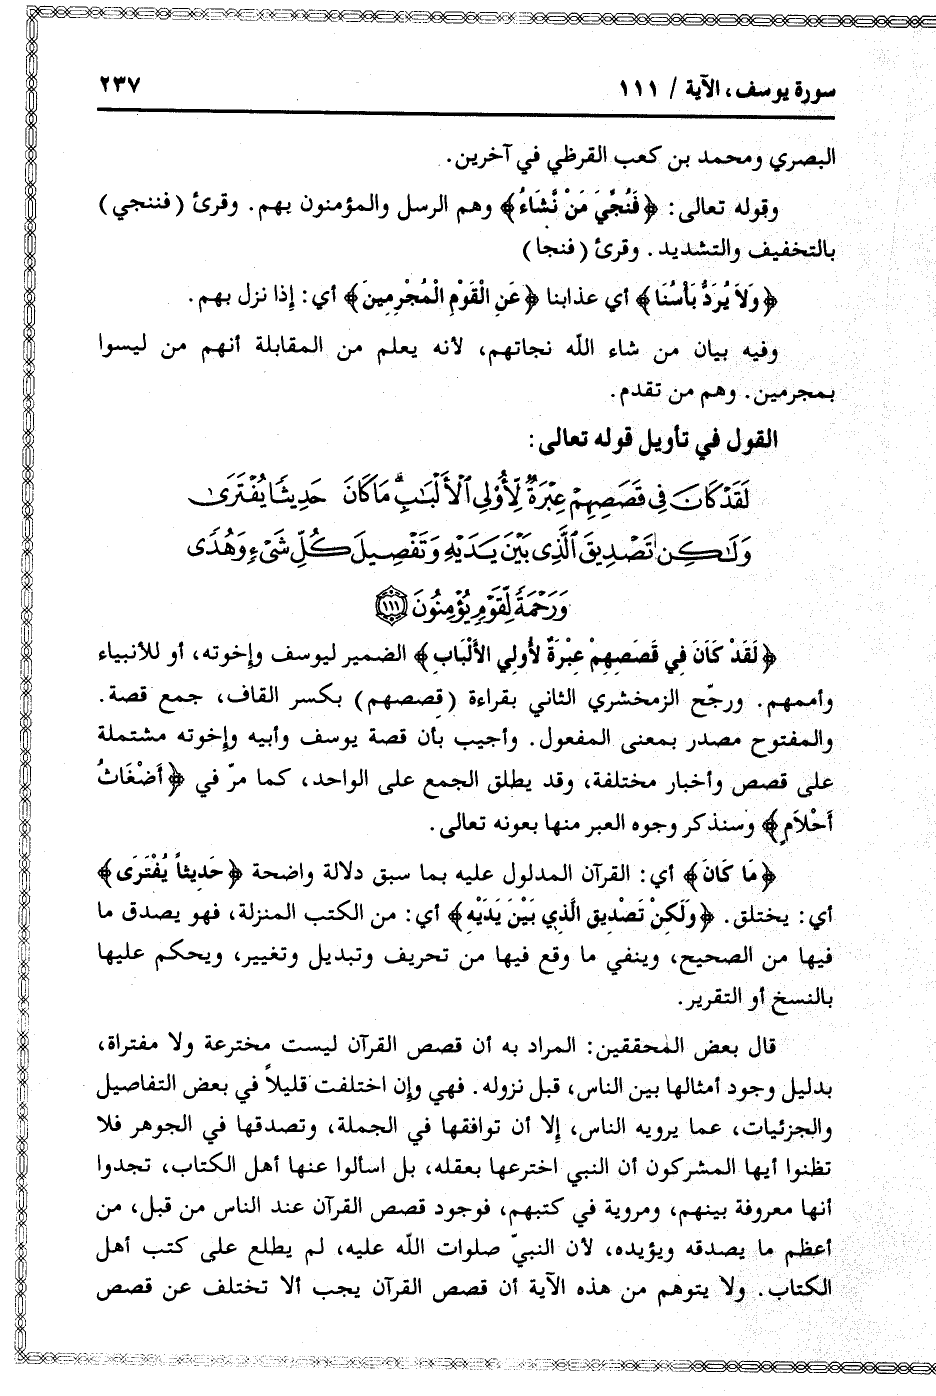 سورة يوسف، الآية / ١١١
٢٣٧
البصري ومحمد بن كعب القرظي في آخرين.
وقوله تعالى: ﴿فَنُجِّيَ مَنْ نَّشَاءُ﴾ وهم الرسل والمؤمنون بهم. وقرئ (فننجي)
بالتخفيف والتشديد. وقرئ (فنجا)
﴿وَلاَ يُرَدُّ بَأْسُنَا﴾ أي عذابنا ﴿عَنِ الْقَوْمِ الْمُجْرِمِينَ﴾ أي: إذا نزل بهم.
وفيه بيان من شاء الله نجاتهم، لأنه يعلم من المقابلة أنهم من ليسوا
بمجرمين. وهم من تقدم.
القول في تأويل قوله تعالى:
لَقَدْ كَانَ فِي قَصَصِهِمْ عِبْرَةٌ لِّأُوْلِي ٱلْأَلْبَٰبِۗ مَا كَانَ حَدِيثًا يُفْتَرَىٰ
وَلَٰكِن تَصْدِيقَ ٱلَّذِى بَيْنَ يَدَيْهِ وَتَفْصِيلَ كُلِّ شَىْءٍ وَهُدًى
وَرَحْمَةً لِّقَوْمٍ يُؤْمِنُونَ ١١١
﴿لَقَدْ كَانَ فِي قَصَصِهِمْ عِبْرَةٌ لأُولِي الأَلْبَابِ﴾ الضمير ليوسف وإخوته، أو للأنبياء
وأممهم. ورجّح الزمخشري الثاني بقراءة (قِصصهم) بكسر القاف، جمع قصة.
والمفتوح مصدر بمعنى المفعول. وأجيب بأن قصة يوسف وأبيه وإخوته مشتملة
على قصص وأخبار مختلفة، وقد يطلق الجمع على الواحد، كما مرّ في ﴿أَضْغَاثُ
أَحْلاَمٍ﴾ وسنذكر وجوه العبر منها بعونه تعالى.
﴿مَا كَانَ﴾ أي: القرآن المدلول عليه بما سبق دلالة واضحة ﴿حَدِيثاً يُفْتَرَى﴾
أي: يختلق. ﴿وَلَكِنْ تَصْدِيقَ الَّذِي بَيْنَ يَدَيْهِ﴾ أي: من الكتب المنزلة، فهو يصدق ما
فيها من الصحيح، وينفي ما وقع فيها من تحريف وتبديل وتغيير، ويحكم عليها
بالنسخ أو التقرير.
قال بعض المحققين: المراد به أن قصص القرآن ليست مخترعة ولا مفتراة،
بدليل وجود أمثالها بين الناس، قبل نزوله. فهي وإن اختلفت قليلاً في بعض التفاصيل
والجزئيات، عما يرويه الناس، إلا أن توافقها في الجملة، وتصدقها في الجوهر فلا
تظنوا أيها المشركون أن النبي اخترعها بعقله، بل اسألوا عنها أهل الكتاب، تجدوا
أنها معروفة بينهم، ومروية في كتبهم، فوجود قصص القرآن عند الناس من قبل، من
أعظم ما يصدقه ويؤيده، لأن النبيّ صلوات الله عليه، لم يطلع على كتب أهل
الكتاب. ولا يتوهم من هذه الآية أن قصص القرآن يجب ألا تختلف عن قصص